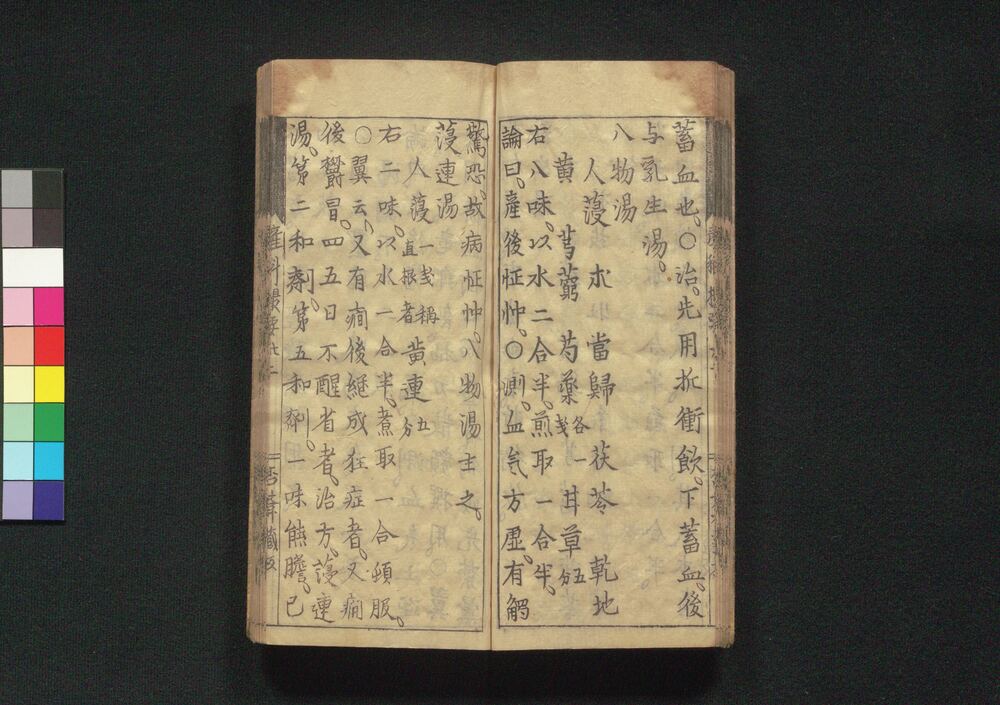 蓄血也。〇治。先用折衝飲。下蓄血。後
与乳生湯。
八物湯
人蓡 朮 當歸 茯苓 乾地
黄 芎藭 芍藥各一戔 甘草五分
右八味。以水二合半。煎取一合半。
論曰。産後怔忡。〇測。血気方虚。有觸
驚恐。故病怔忡。八物湯主之。
蓡連湯
人蓡一戔稱直根者 黄連五分
右二味。以水一合半。煮取一合。頓服。
〇翼云。又有癇後継成狂症者。又癇
後欝冒。四五日不醒省者。治方。蓡連
湯。第二和劑。第五和劑。一味熊膽。已
産科